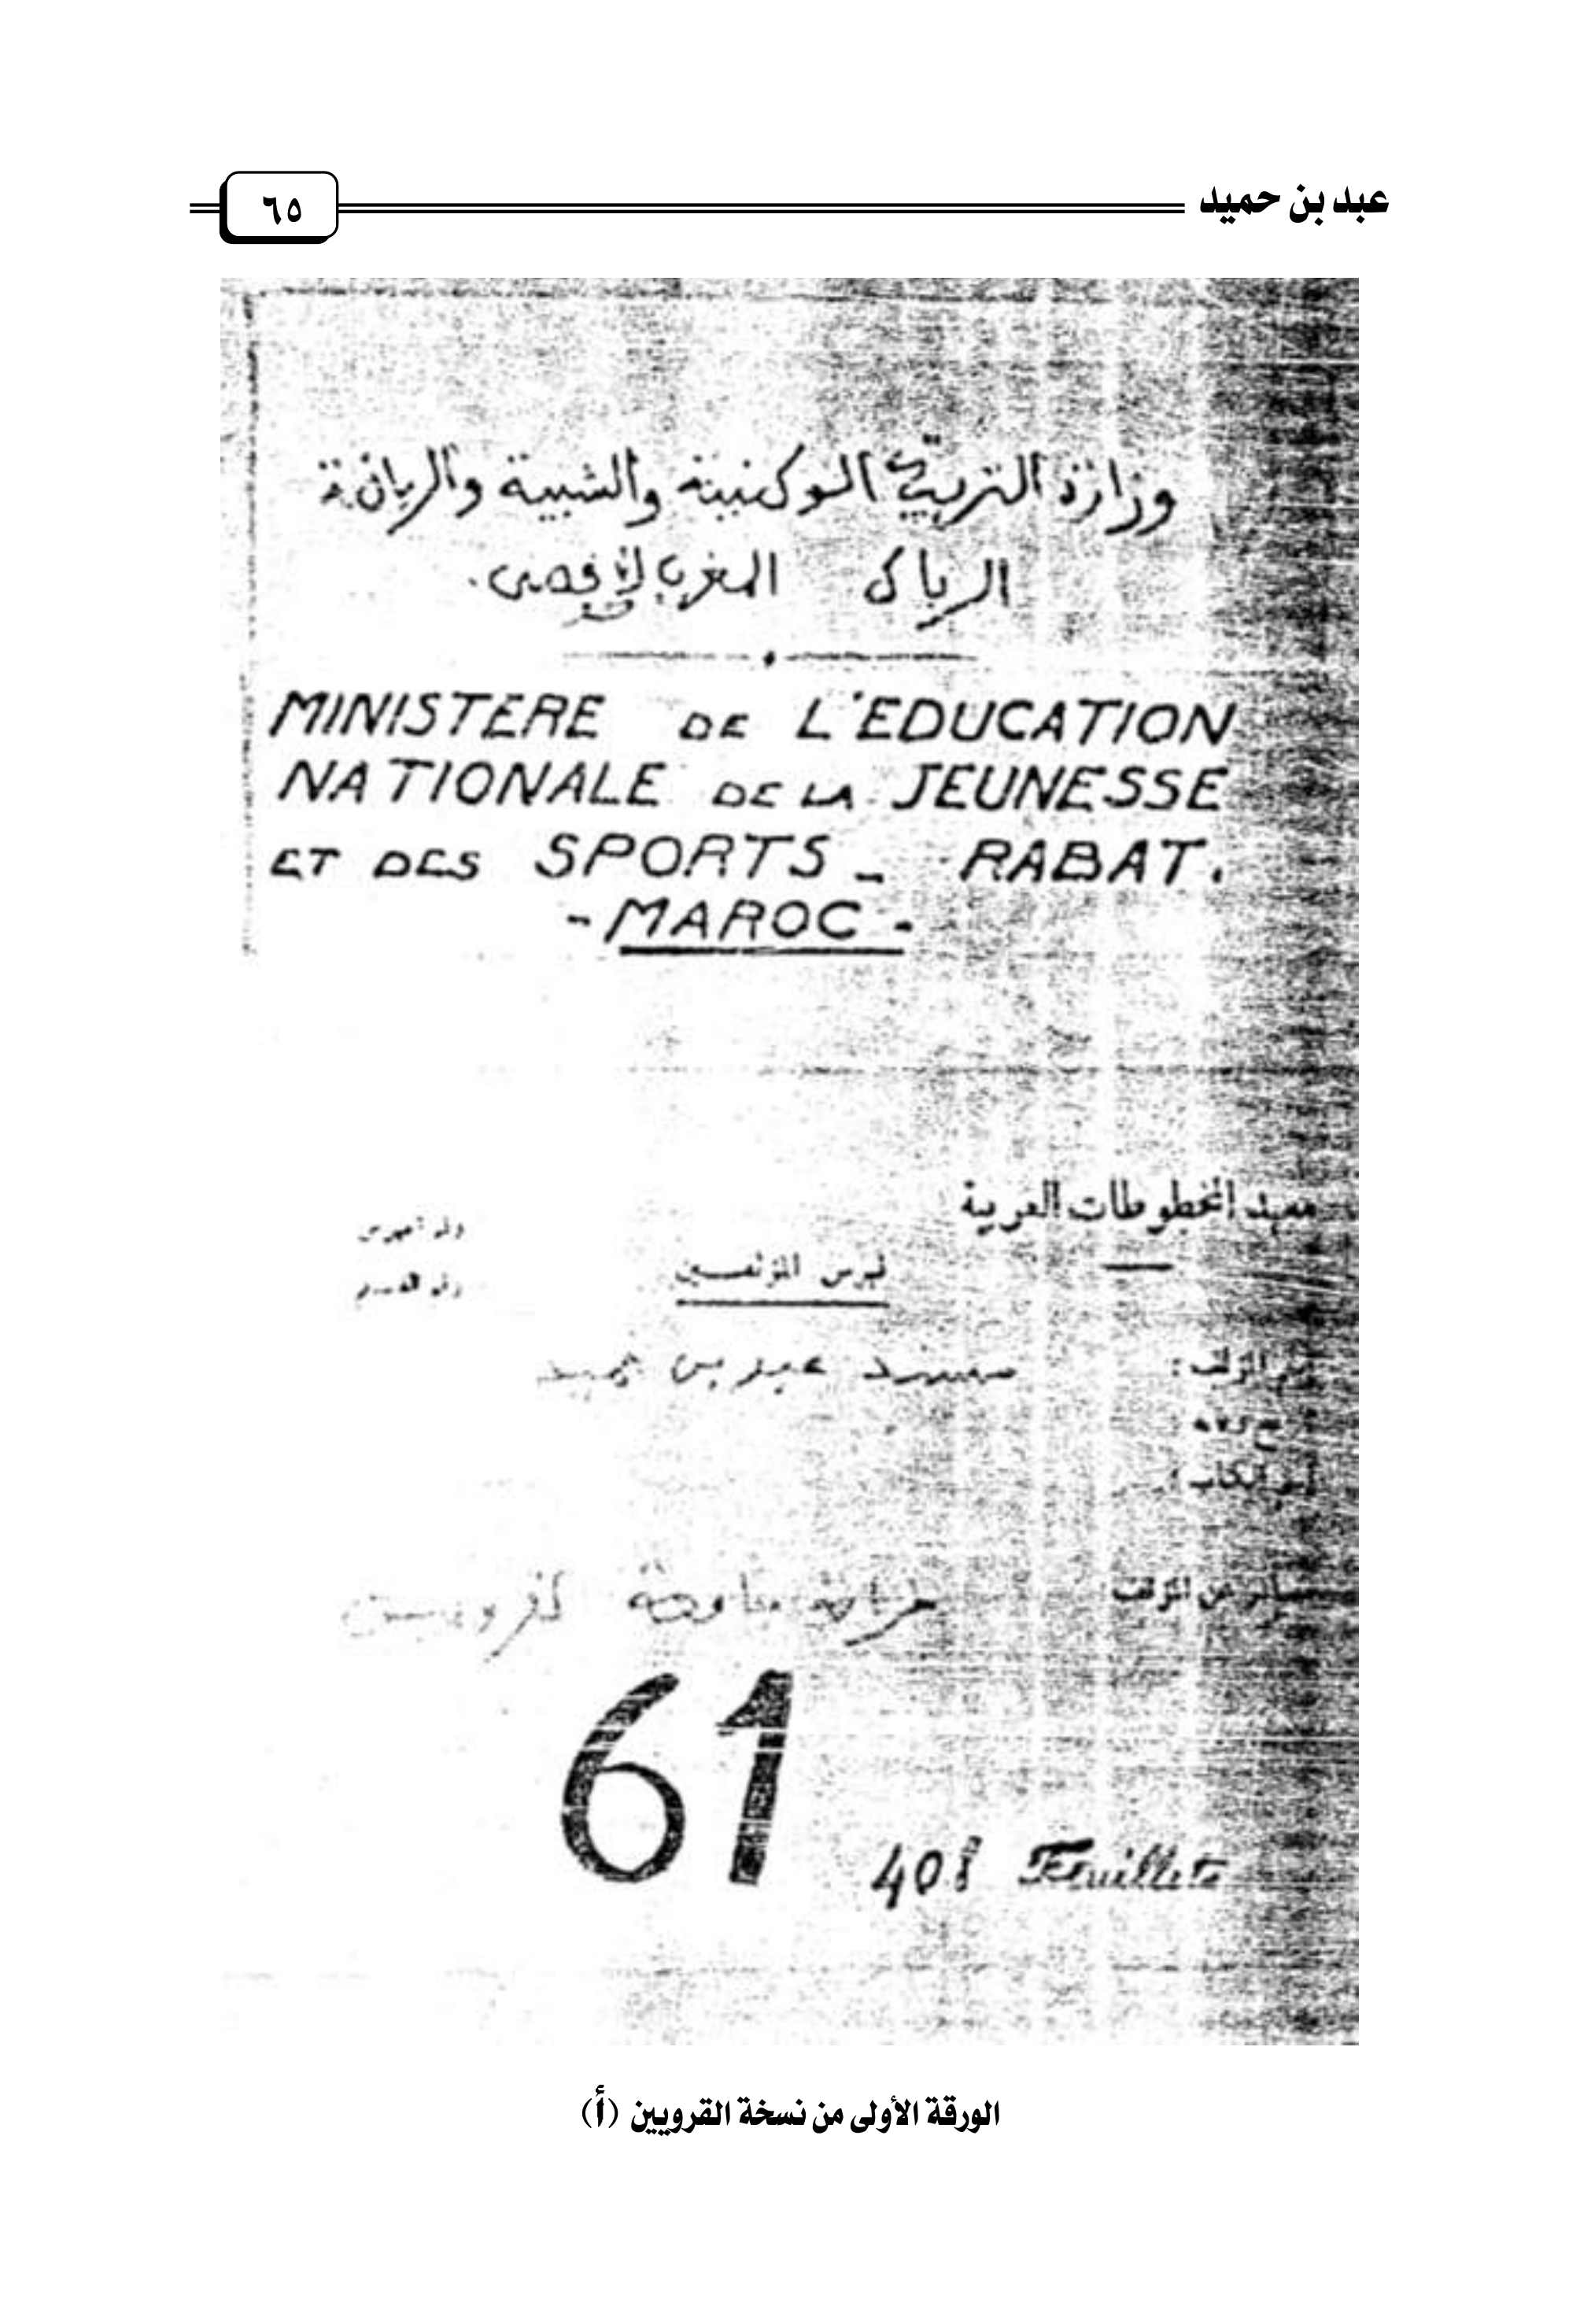 عبد بن حميد
٦٥
وزارة التربية الوطنية والشبيبة والرياضة
الرباط المغرب الأقصى.
MINISTERE DE L'EDUCATION
NATIONALE DE LA JEUNESSE
ET DES SPORTS _ RABAT.
- MAROC -
معهد المخطوطات العربية
فهرس المؤلفين
مسند عبد بن حميد
المؤلف :
اسم الكتاب :
عن المؤلف
61
408 Feuillets
الورقة الأولى من نسخة القرويين (أ)